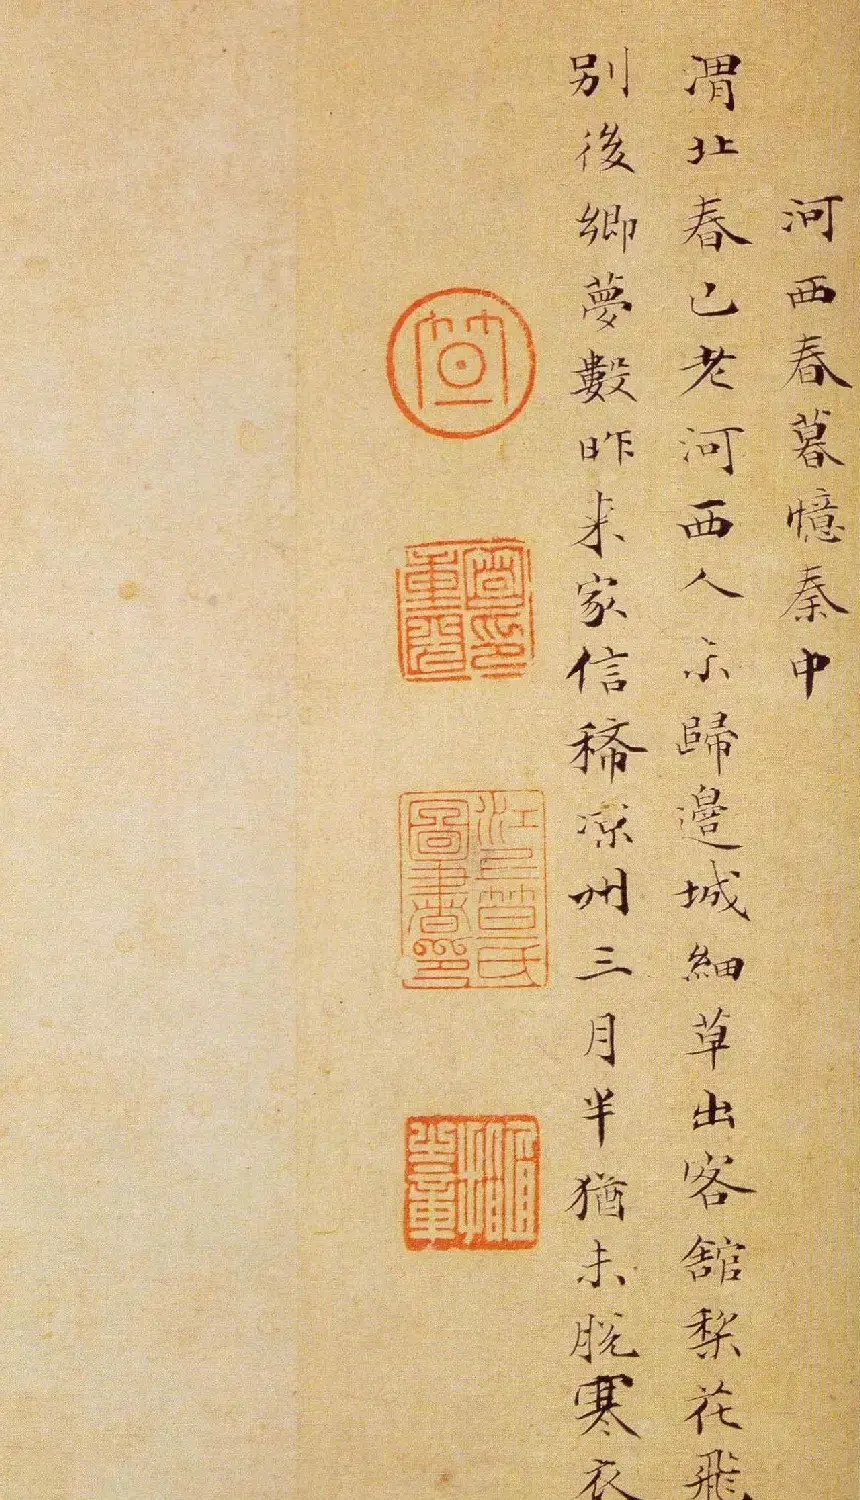 河西春暮憶秦中
渭北春已老河西人未歸邊城細草出客舘梨花飛
別後鄉夢數昨来家信稀涼州三月半猶未脫寒衣